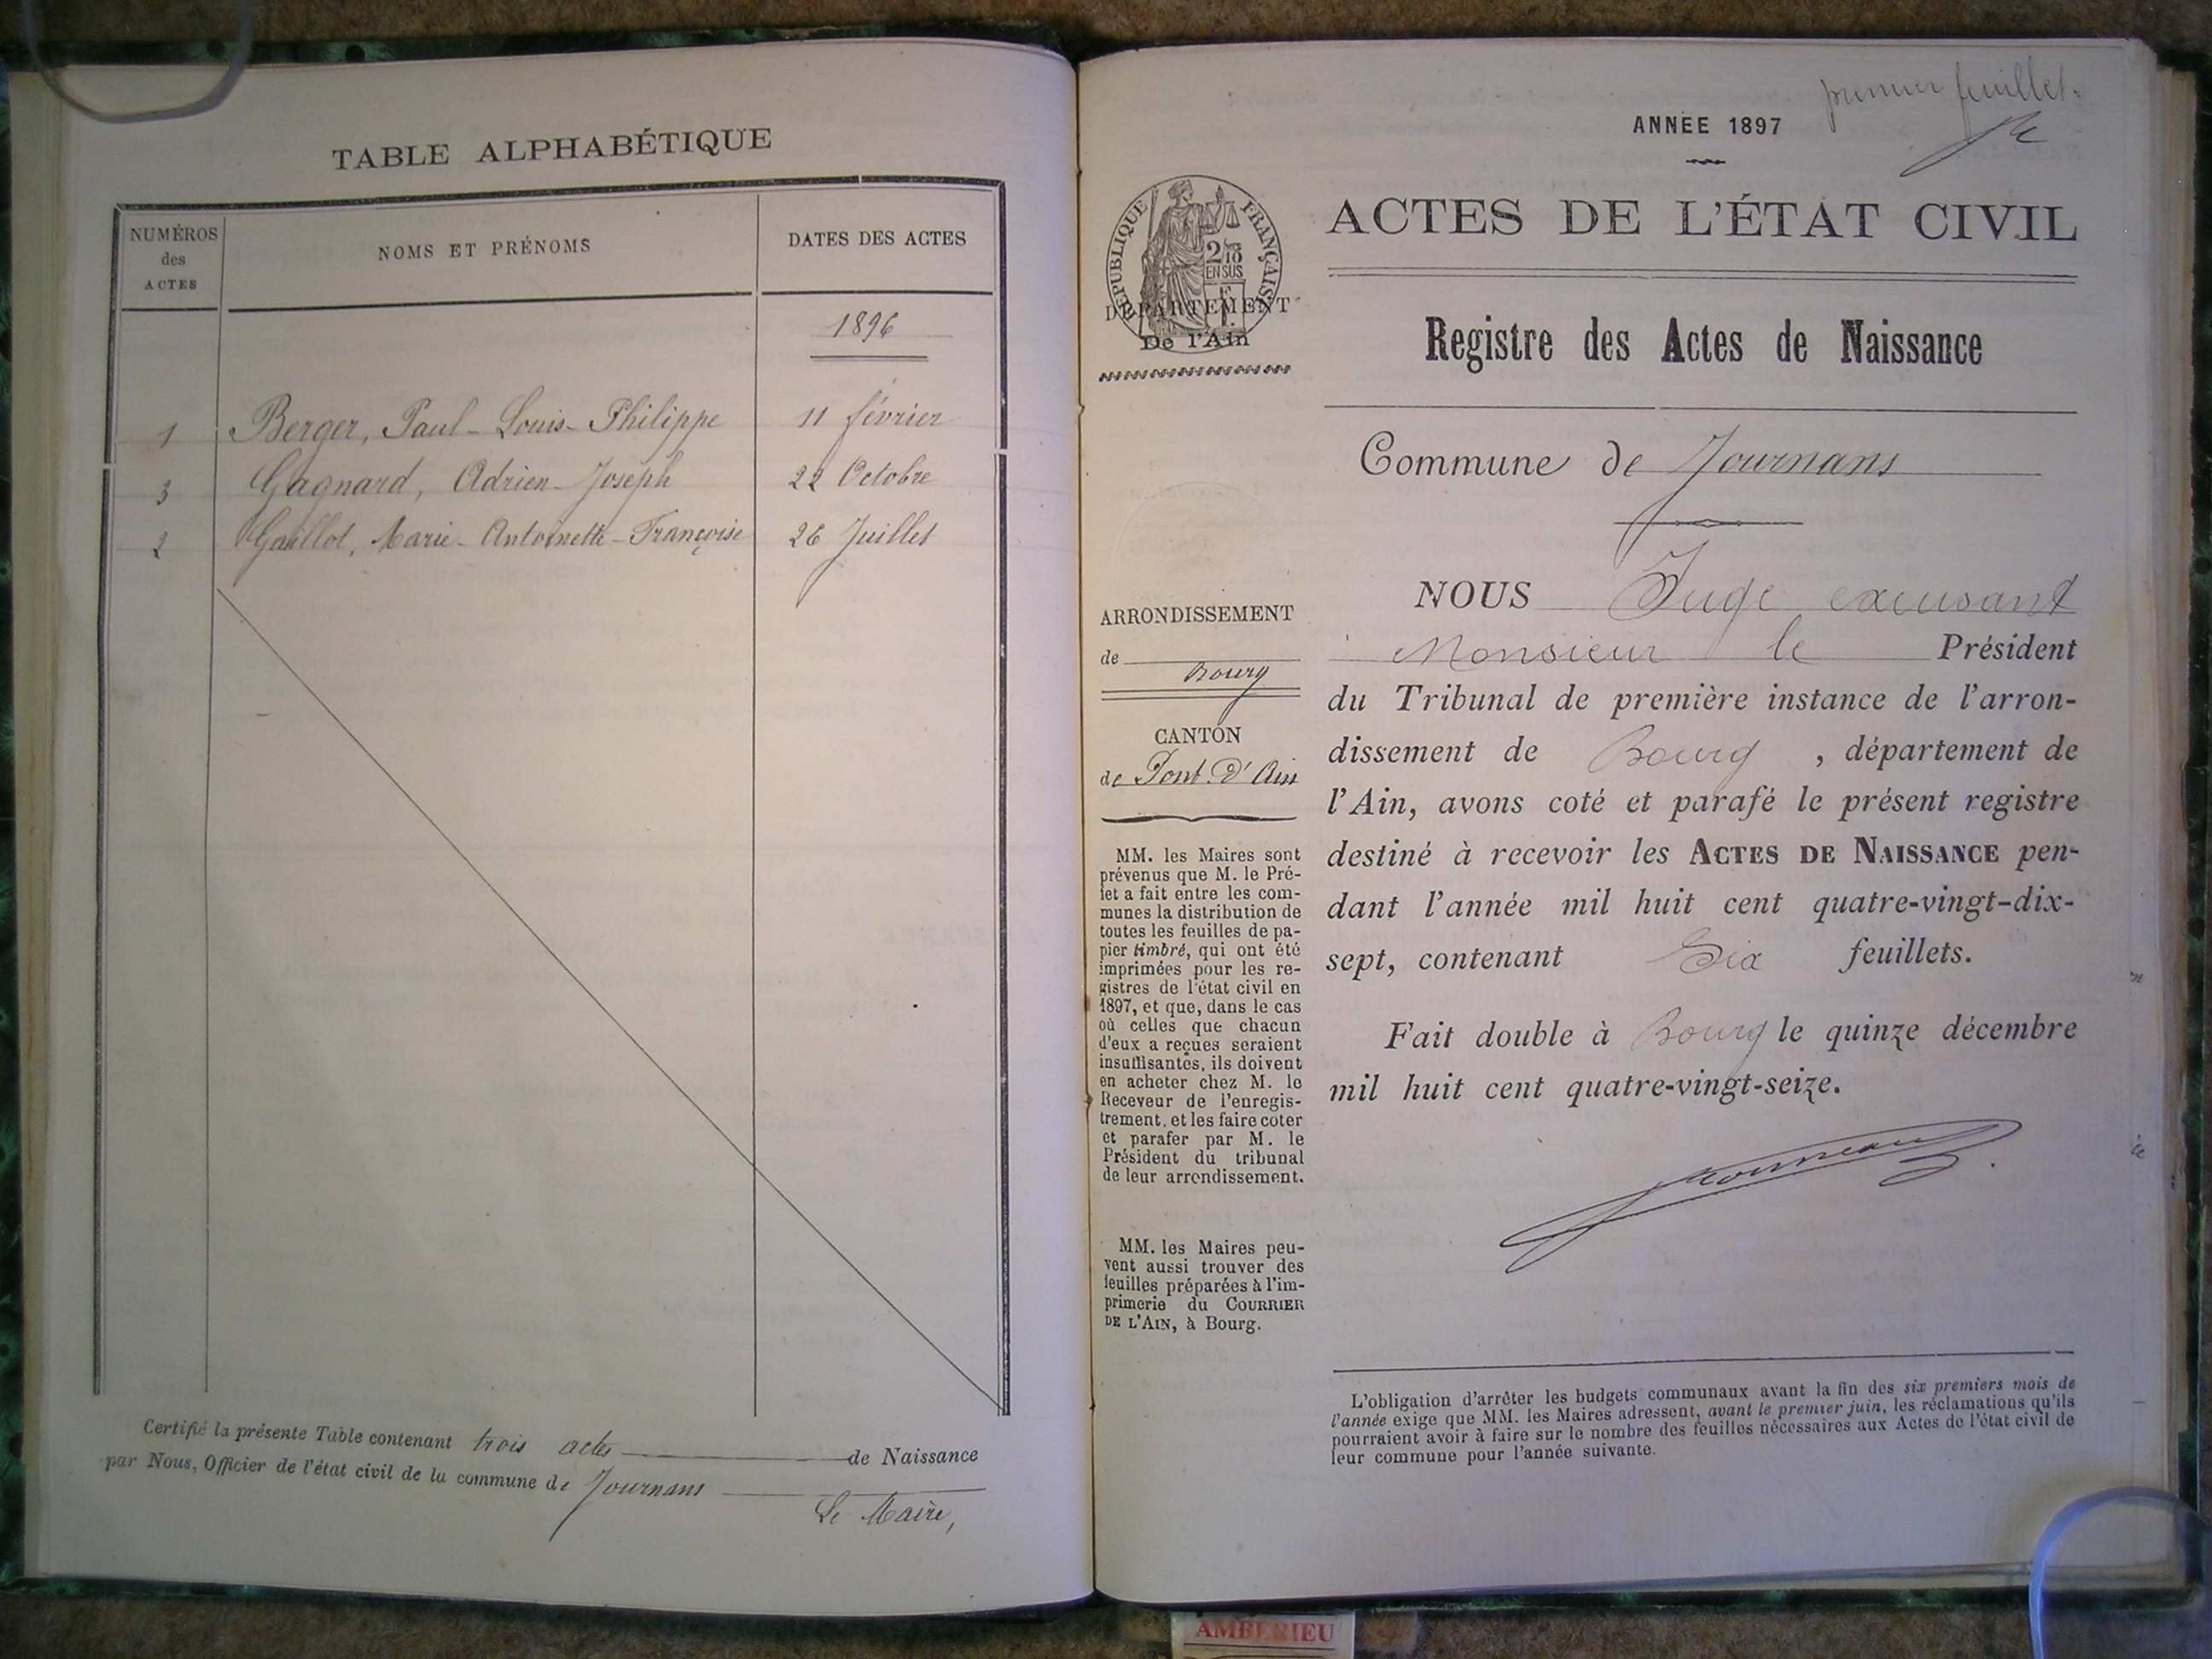 TABLE ALPHABÉTIQUE
NUMÉROS
des
ACTES
NOMS ET PRÉNOMS
DATES DES ACTES
1896
1 Berger, Paul-Louis-Philippe 11 février
3 Gagnard, Adrien-Joseph 22 Octobre
2 Gaillot, Marie-Antoinette-Françoise 26 Juillet
Certifié la présente Table contenant trois actes de Naissance
par Nous, Officier de l'état civil de la commune de Journans
Le Maire,
premier feuillet.
ANNÉE 1897
RÉPUBLIQUE FRANÇAISE
2/10
EN SUS
DÉPARTEMENT
De l'Ain
ARRONDISSEMENT
de Bourg
CANTON
de Pont-d'Ain
MM. les Maires sont
prévenus que M. le Pré-
fet a fait entre les com-
munes la distribution de
toutes les feuilles de pa-
pier timbré, qui ont été
imprimées pour les re-
gistres de l'état civil en
1897, et que, dans le cas
où celles que chacun
d'eux a reçues seraient
insuffisantes, ils doivent
en acheter chez M. le
Receveur de l'enregis-
trement, et les faire coter
et parafer par M. le
Président du tribunal
de leur arrondissement.
MM. les Maires peu-
vent aussi trouver des
feuilles préparées à l'im-
primerie du COURRIER
DE L'AIN, à Bourg.
ACTES DE L'ÉTAT CIVIL
Registre des Actes de Naissance
Commune de Journans
NOUS Juge excusant
Monsieur le Président
du Tribunal de première instance de l'arron-
dissement de Bourg, département de
l'Ain, avons coté et parafé le présent registre
destiné à recevoir les ACTES DE NAISSANCE pen-
dant l'année mil huit cent quatre-vingt-dix-
sept, contenant Six feuillets.
Fait double à Bourg le quinze décembre
mil huit cent quatre-vingt-seize.
L'obligation d'arrêter les budgets communaux avant la fin des six premiers mois de
l'année exige que MM. les Maires adressent, avant le premier juin, les réclamations qu'ils
pourraient avoir à faire sur le nombre des feuilles nécessaires aux Actes de l'état civil de
leur commune pour l'année suivante.
AMBERIEU